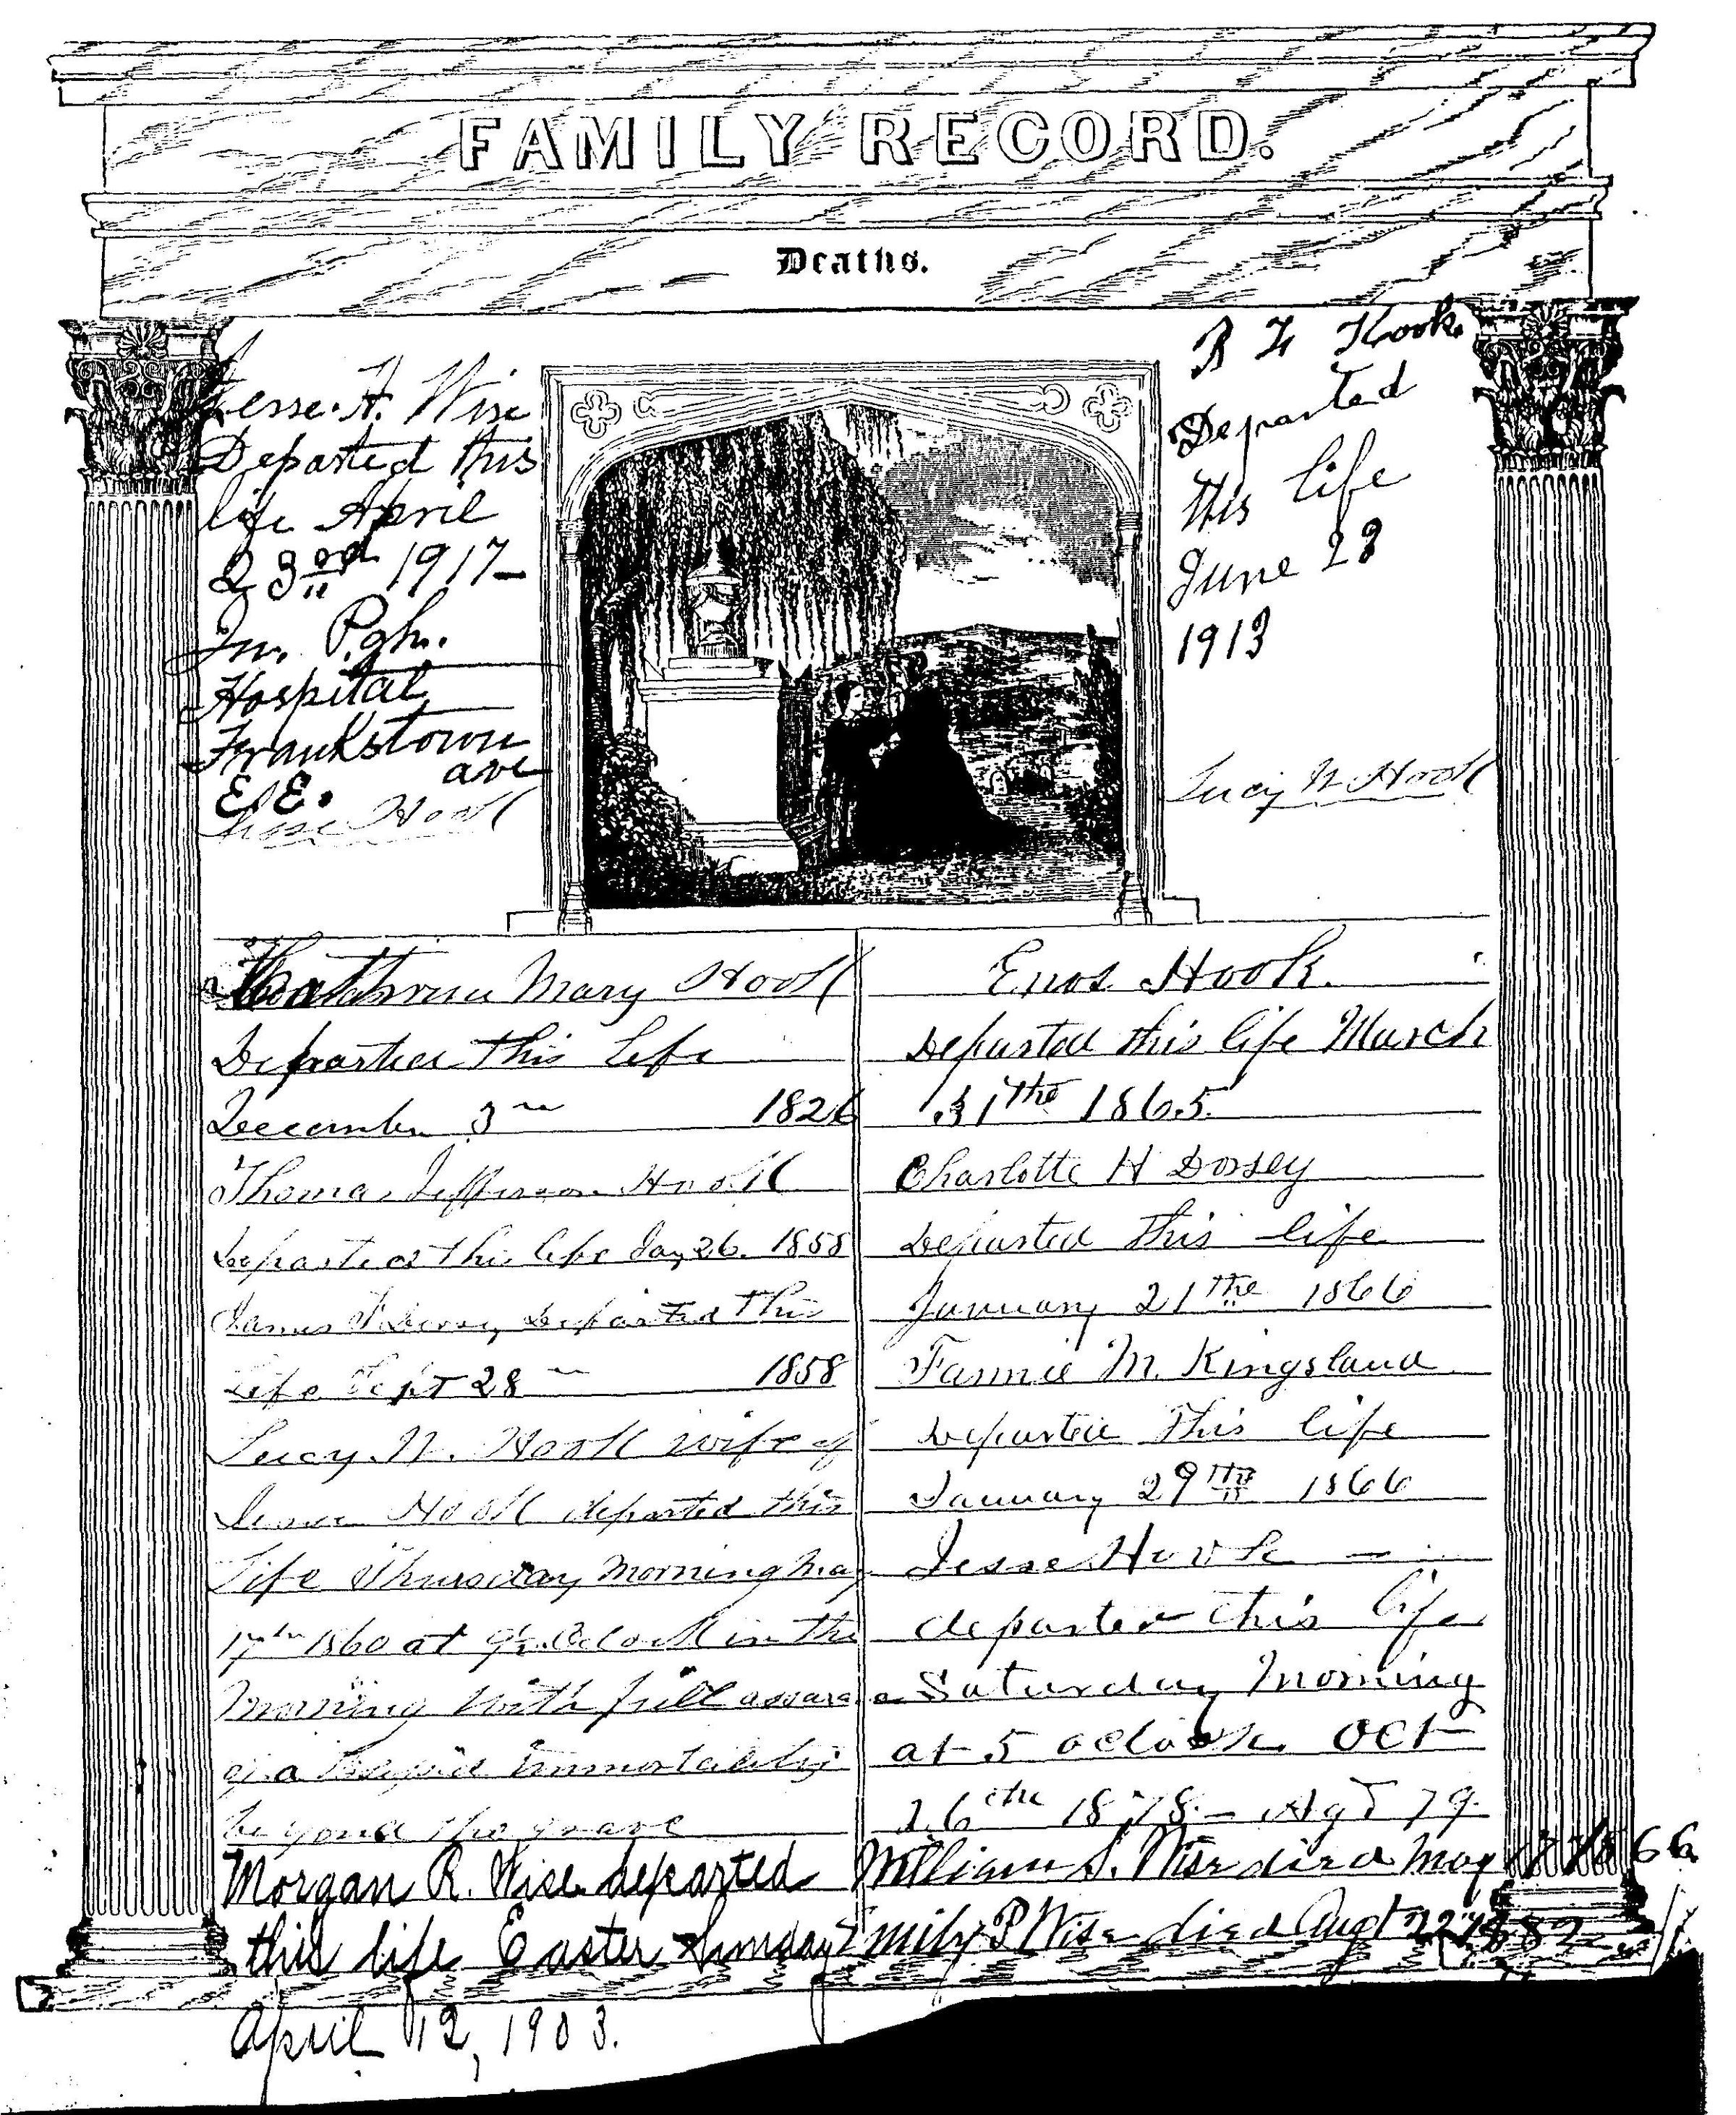 FAMILY RECORD.
Deaths.
Jesse. H. Wise
Departed this
life April
23rd 1917-
In. Pgh.
Hospital
Frankstown
ave
E. E.
Jesse Hook
R F Hook
Departed
This life
June 23
1913
Lucy N Hook
Cathrine Mary Hook
Departed this Life
December 3rd 1826
Thomas Jefferson Hook
Departed this life Jay 26. 1858
James Departed This
Life Sept 28 1858
Lucy. N. Hook wife of
Jesse Hook departed this
Life Thursday morning May
17th 1860 at Oclock in the
morning With full assurance
of a immortality
beyond the grave
Morgan R. Wise departed
this life Easter Sunday
April 12, 1903.
Enos Hook.
Departed this life March
31the 1865.
Charlotte H Dorsey
Departed This life
January 21the 1866
Fannie M. Kingsland
Departed This life
January 29th 1866
Jesse Hook
departed this life
Saturday Morning
at 5 oclock Oct
26the 1878 - Agd 79
William S. Wise died May 66
Emily P Wise died Augt 22 1882